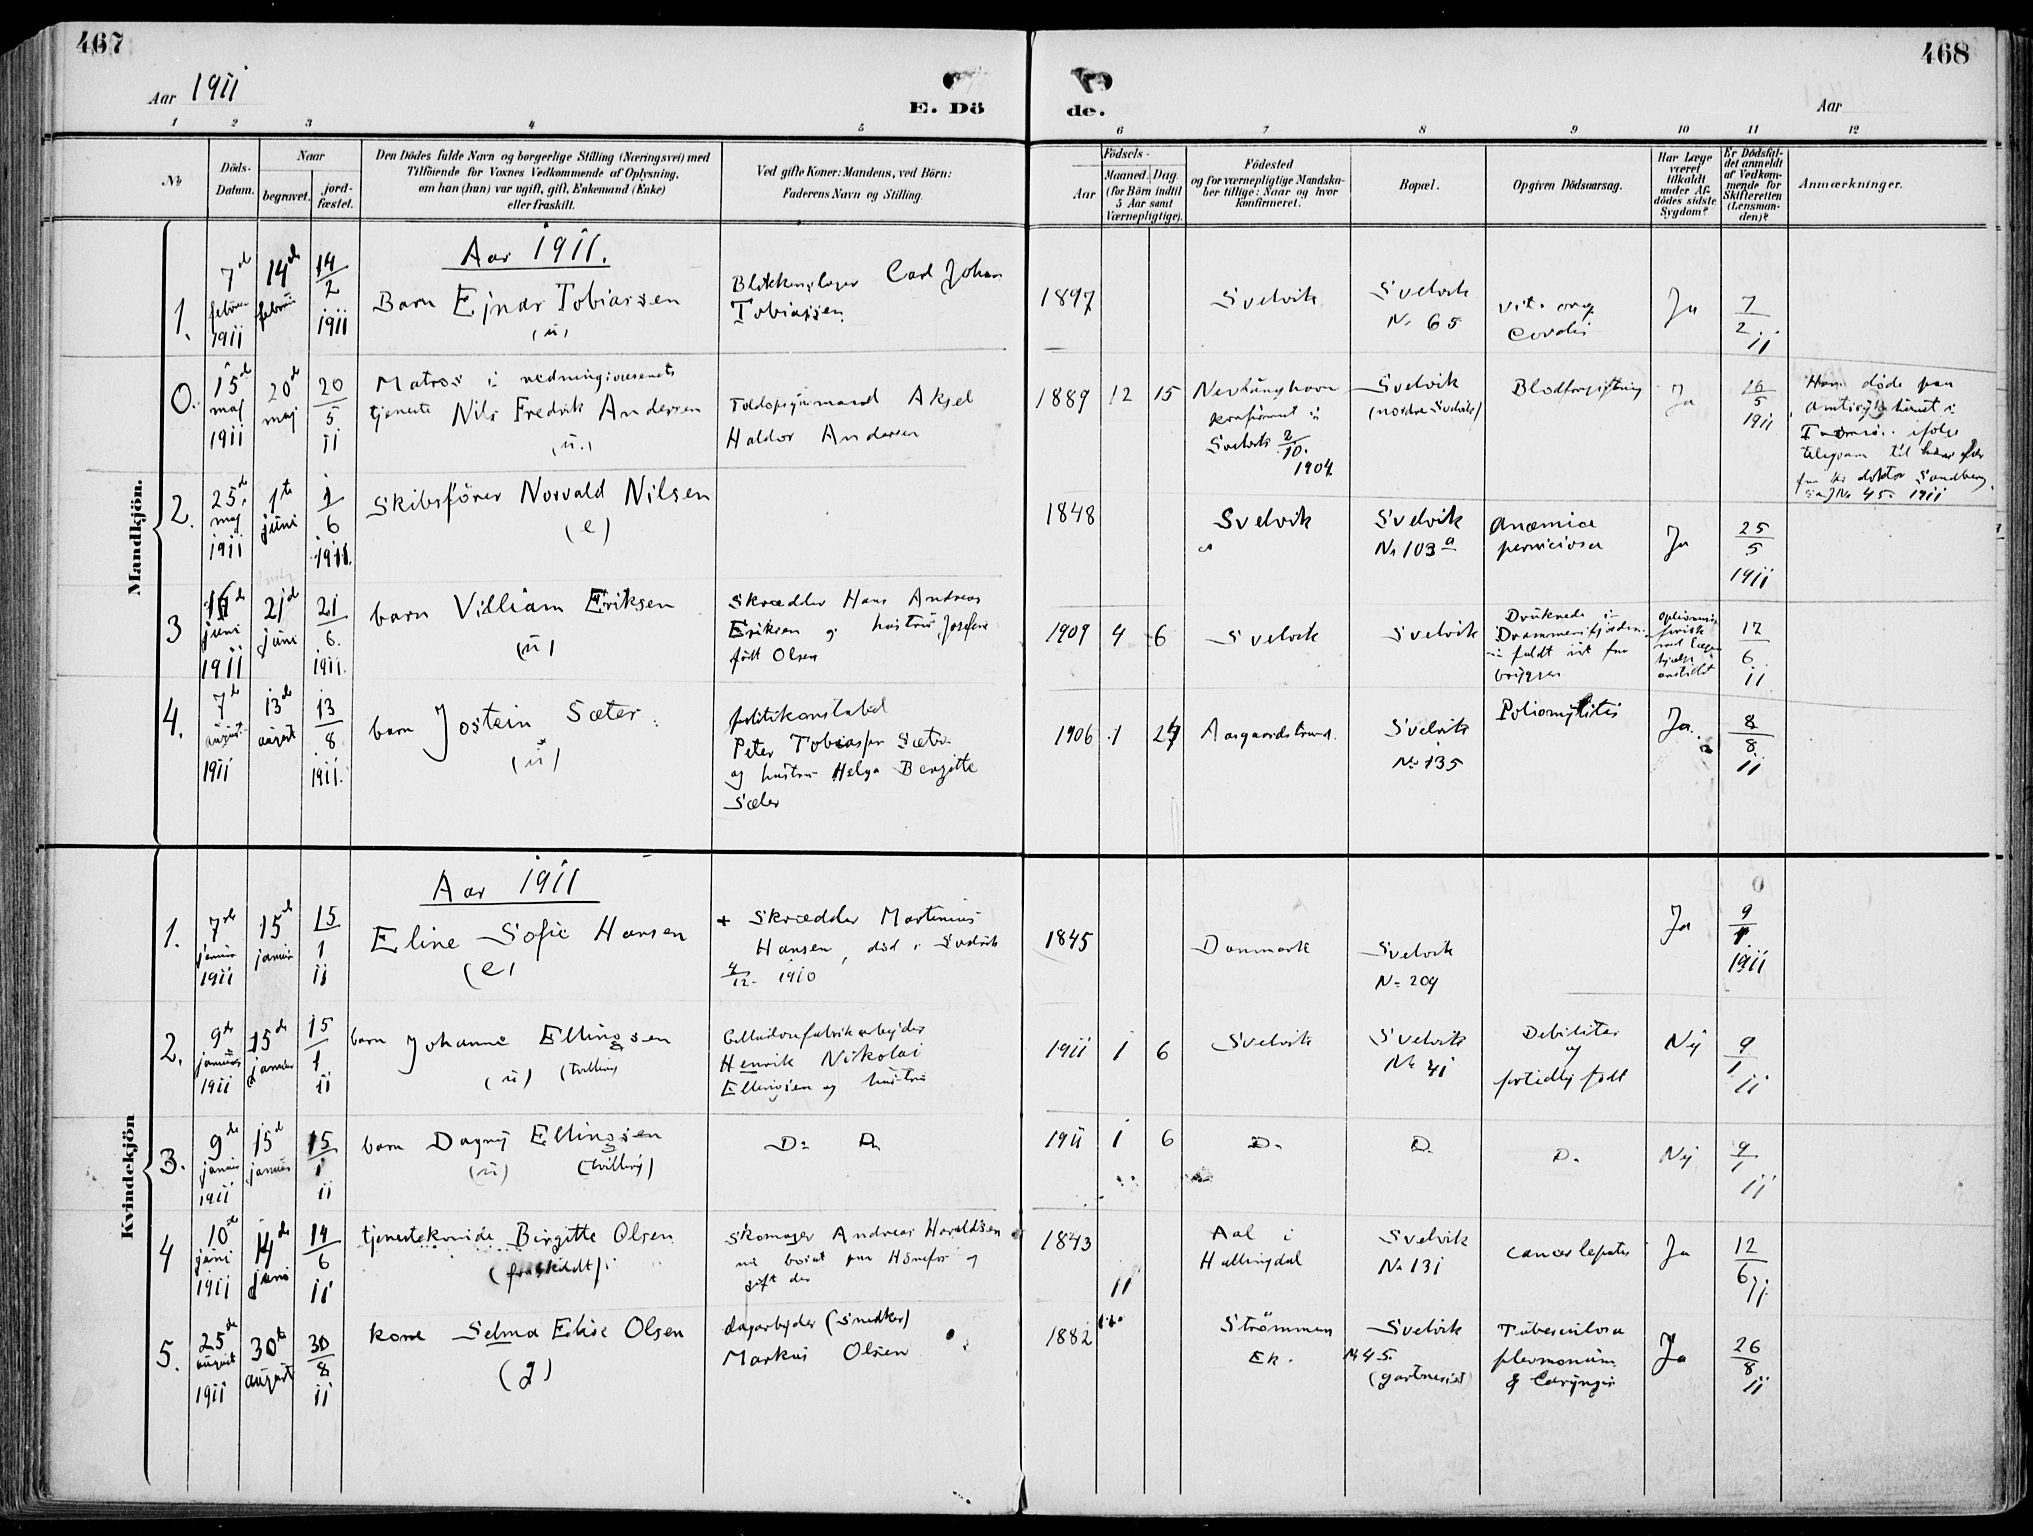 467
468
Aar 1911
E. Dö
de.
Aar
1 2 3 4 5 6 7 8 9 10 11 12
No.
Döds-
Datum.
Naar
begravet.
jord-
fæstet.
Den Dödes fulde Navn og borgerlige Stilling (Næringsvei) med
Tilföiende for Voxnes Vedkommende af Oplysning,
om han (hun) var ugift, gift, Enkemand (Enke)
eller fraskilt.
Ved gifte Koner: Mandens, ved Börn:
Faderens Navn og Stilling.
Födsels-
Aar
Maaned. Dag.
(for Börn indtil
5 Aar samt
Værnepligtige).
Födested
og for værnepligtige Mandska-
ber tillige: Naar og hvor
konfirmeret.
Bopæl.
Opgiven Dödsaarsag.
Har Læge
været
tilkaldt
under Af-
dödes sidste
Sygdom?
Er Dödsfal-
det anmeldt
af Vedkom-
mende for
Skifteretten
(Lensman-
den)?
Anmærkninger.
Mandkjön.
Aar 1911.
1.
7de
februar
1911
14de
februar
14
2
1911
Barn Ejnar Tobiassen
(u)
Blikkenslager Carl Johan
Tobiassen
1897
Svelvik
Svelvik
No 65
vit. org
Cordis
Ja
7
2
11
0.
15de
maj
1911
20de
maj
20
5
11
Matros i redningsvæsenets
tjeneste Nils Fredrik Andersen
(u.)
Toldopsynsmand Aksel
Haldor Andersen
1889 12 15
konfirmeret i
Svelvik 2
10.
1904
Svelvik
(nordre Svelvik)
Blodforgiftning
Ja
16
5
1911
Han døde paa
Amtssygehuset i
ifølge
telegram til
fra doktor Sandberg
No 45 1911
2.
25de
maj
1911
1ste
juni
1
6
1911.
Skibsfører Norvald Nilsen
(e)
1848
Svelvik
Svelvik
No 103 a
Anæmica
perniciosa
Ja
25
5
1911
3
16de
juni
1911
21de
juni
21
6.
1911.
barn Villiam Eriksen
(u)
Skrædder Hans Andreas
Eriksen og hustru Josefine
født Olsen
1909 4 6
Svelvik
Svelvik
Druknede i
Drammensfjorden
faldt ud fra
bryggen
17
6.
11
4.
7de
august
1911
13de
august
13
8
1911.
barn Jostein Sæter.
(u)
politikonstabel
Peter Tobiassen Sæter
og hustru Helga Bergitte
Sæter
1906 1 24
Aasgaardstrand.
Svelvik
No 135
Poliomylitis
Ja.
8
8.
11
Kvindekjön
Aar 1911
1.
7de
januar
1911
15de
januar
15
1
11
Eline Sofie Hansen
(e)
+ Skrædder Martinius
Hansen, død i Svelvik
4
12. 1910
1845
Danmark
Svelvik
No 209
Ja
9
1
1911
2.
9de
januar
1911
15de
januar
15
1
11
barn Johanne Ellingsen
(u) (tvilling)
Cellulosefabrikarbejder
Henrik Nikolai
Ellingsen og hustru
1911 1 6
Svelvik
Svelvik
No 41
Debilitas
og
fortidlig født
Nej
9
1
11
3.
9de
januar
1911
15de
januar
15
1
11
barn Dagny Ellingsen
(u) (tvilling)
Do Do
1911 1 6
Do
Do
Do
Nej
9
1
11
4
10de
juni
1911
14de
juni
14
6
11
tjenestekvinde Birgitte Olsen
(fraskildt).
Skomager Andreas Haraldsen
nu bosat paa Hönefos og
gift der
1843
11
Aal i
Hallingdal
Svelvik
No 131
cancer hepatis
Ja
12
6
11
5.
25de
august
1911
30te
august
30
8
11
kone Selma Elise Olsen
(g)
dagarbejder (snedker)
Markus Olsen
1882
Strömmen
Ek.
Svelvik
No 45.
(gartneriet)
Tuberculosa
pleumonium
& Laryngis
Ja
26
8
11